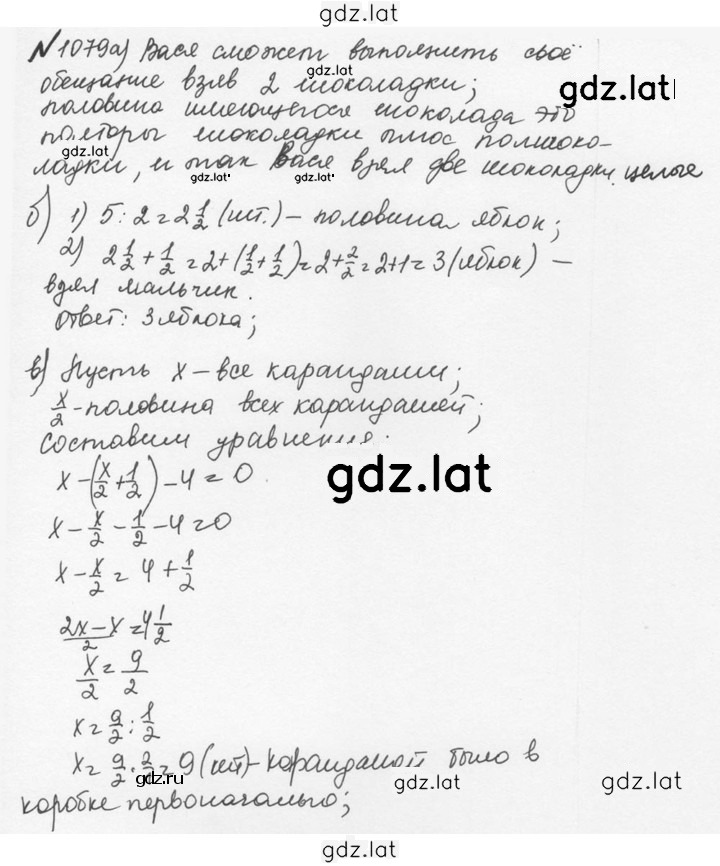 gdz.lat
№1079а) Вася сможет выполнить своё
gdz.lat
обещание взяв 2 шоколадки;
gdz.lat
половина имеющегося шоколада это
полторы шоколадки плюс полшоко-
gdz.lat
ладки, и так Вася взял две шоколадки целые
gdz.lat gdz.lat gdz.lat
б) 1) 5:2=2 1/2 (шт.) – половина яблок;
2) 2 1/2 + 1/2 = 2+(1/2+1/2)=2+2/2=2+1=3 (яблок) –
взял мальчик.
ответ: 3 яблока;
в) Пусть x – все карандаши;
x/2 - половина всех карандашей;
составим уравнение.
x-(x/2+1/2)-4=0
gdz.lat
x-x/2-1/2-4=0
x-x/2=4+1/2
(2x-x)/2=4 1/2
x/2=9/2
x=9/2:1/2
x=9/2·2/2=9 (шт)-карандашей было в
gdz.ru
gdz.lat
gdz.lat
коробке первоначально;
gdz.lat